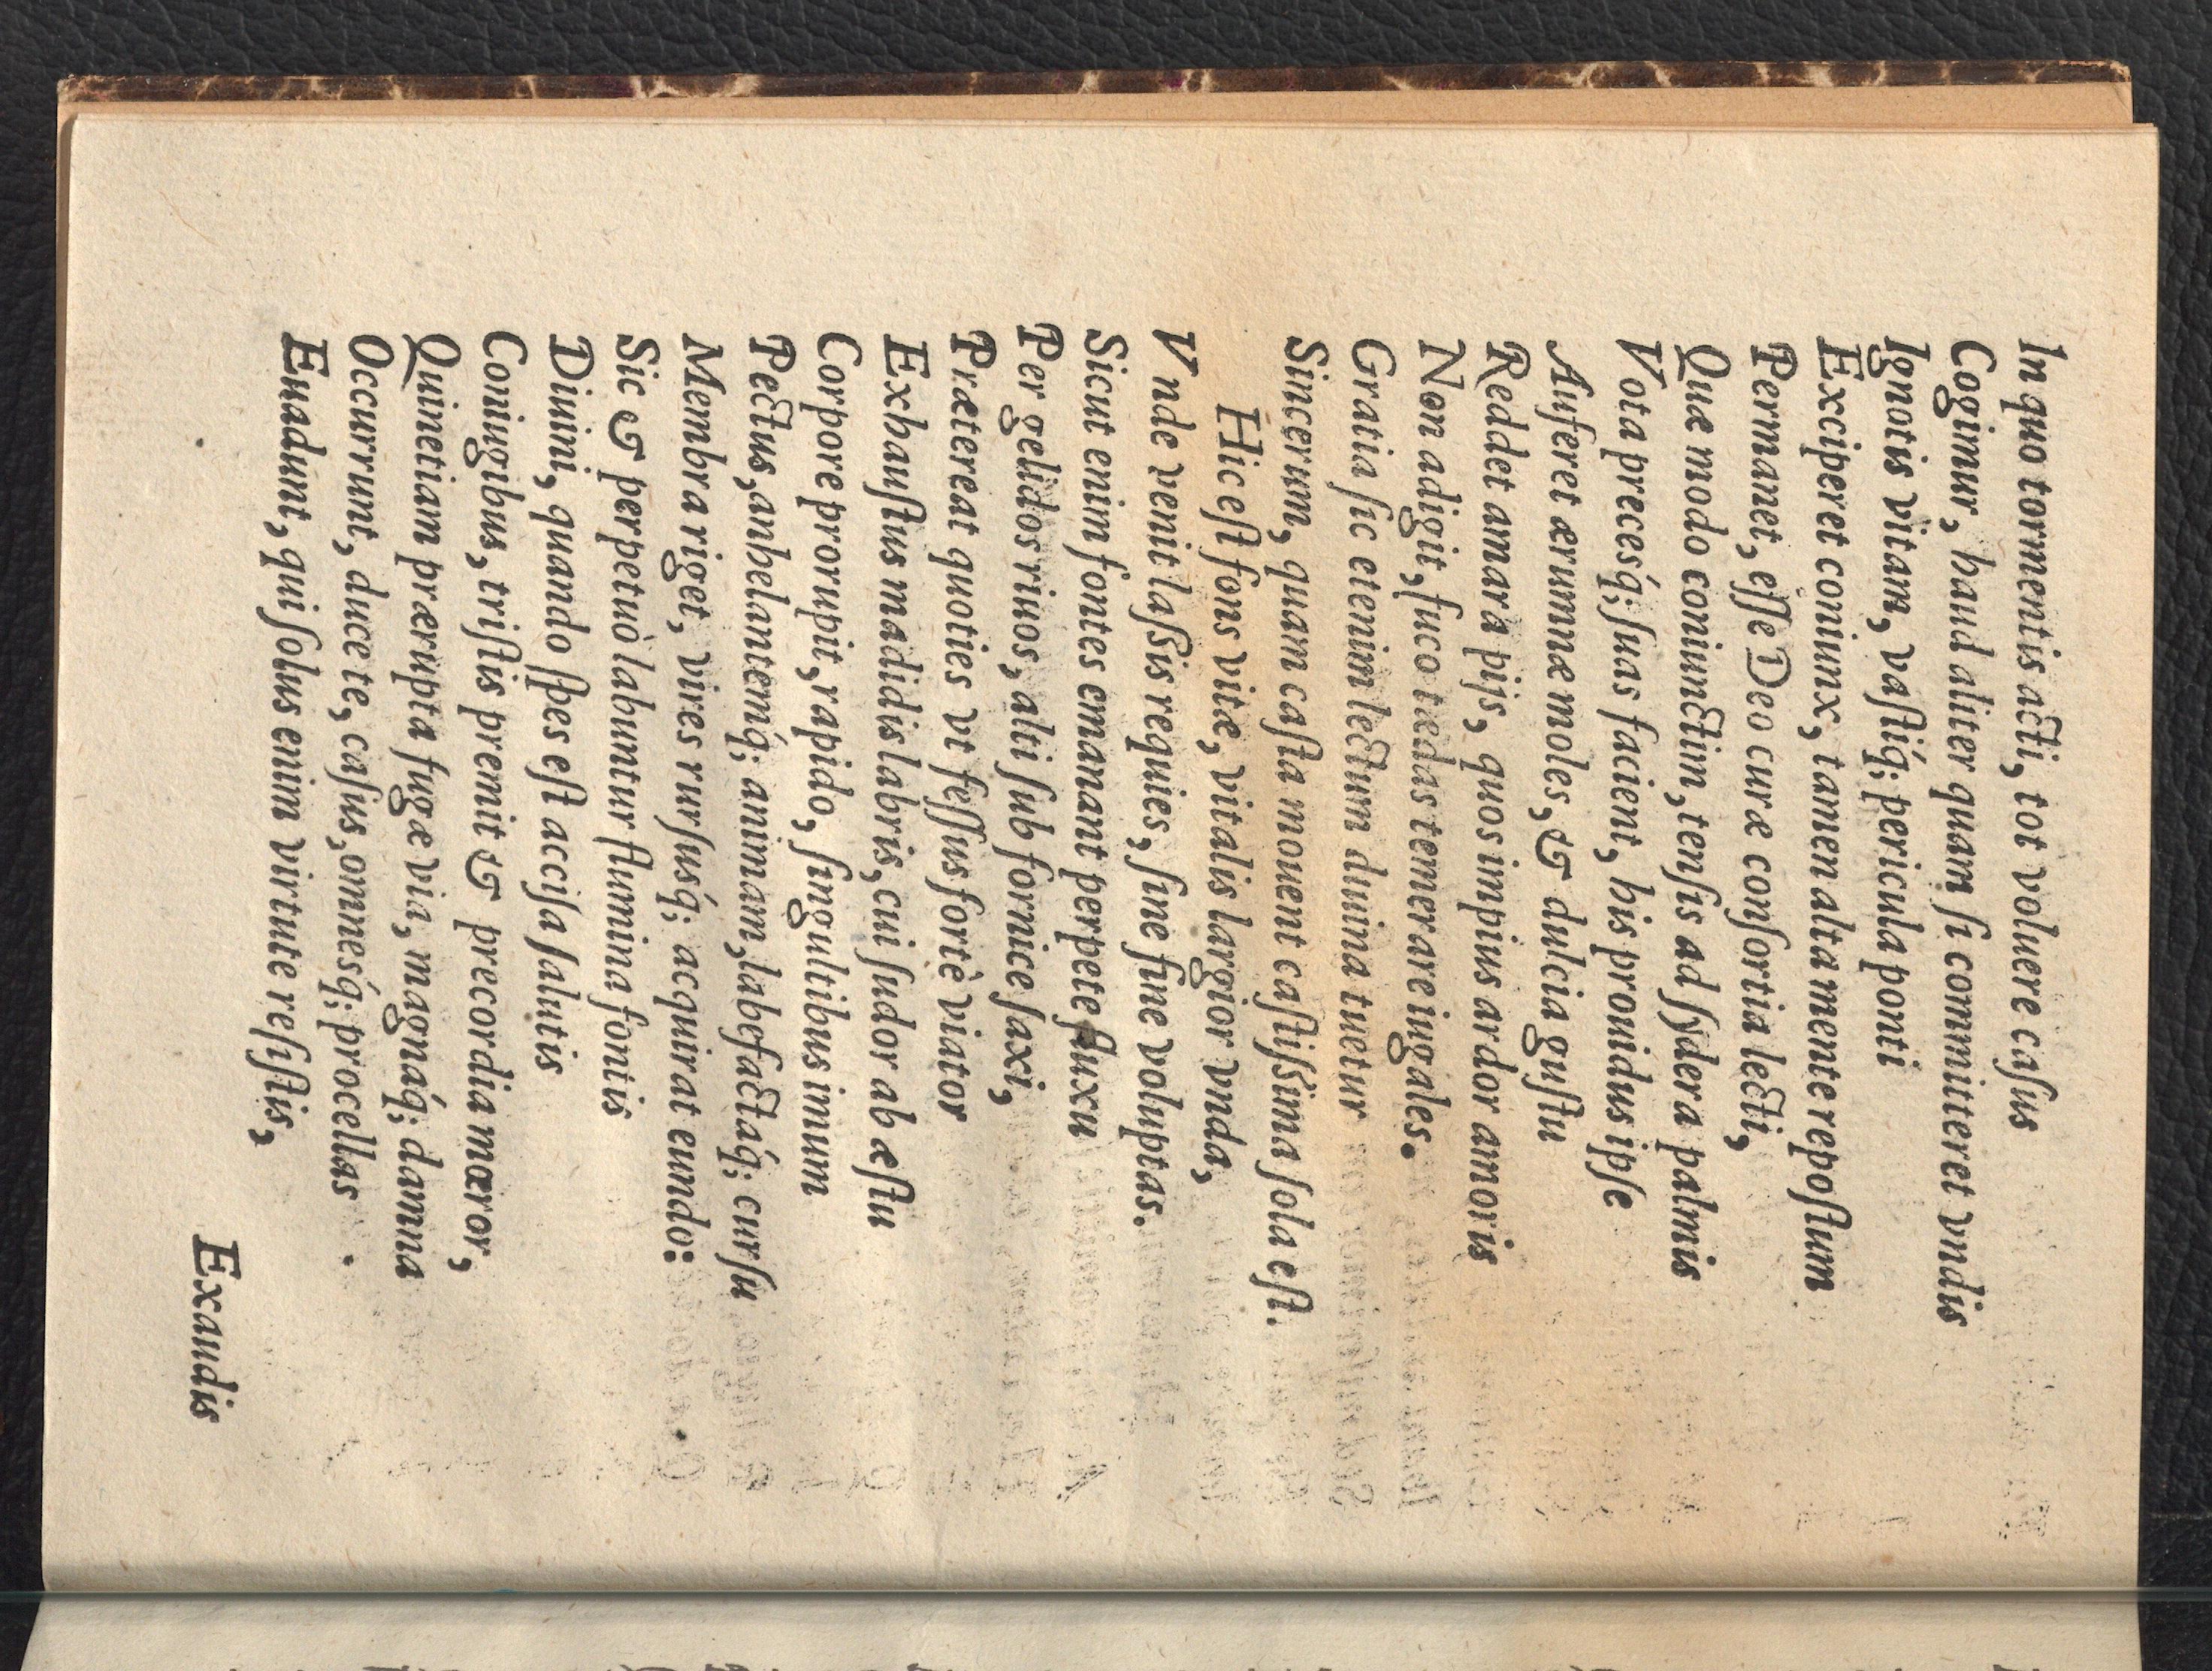 In quo tormentis acti, tot voluere casus
Cogimur, haud aliter quam si committeret vndis
Ignotis vitam, vastiq́; pericula ponti
Exciperet coniunx, tamen alta mente repostum
Permanet, esse Deo curæ consortia lecti,
Quæ modo coniunctim, tensis ad sydera palmis
Vota precesq́; suas facient, his prouidus ipse
Auferet ærumnæ moles, & dulcia gustu
Reddet amara pijs, quos impius ardor amoris
Non adigit, fuco tædas temerare iugales.
Gratia sic etenim lectum diuina tuetur
Sincerum, quam casta mouent castissima sola est.
Hic est fons vitæ, vitalis largior vnda,
Vnde venit lassis requies, sine fine voluptas.
Sicut enim fontes emanant perpete fluxu
Per gelidos riuos, alti sub fornice saxi,
Prætereat quoties vt fessus fortè viator
Exhaustus madidis labris, cui sudor ab æstu
Corpore prorupit, rapido, singultibus imum
Pectus, anhelantemq́; animam, labefactaq́; cursu
Membra riget, vires rursusq́; acquirat eundo:
Sic & perpetuò labuntur flumina fontis
Diuini, quando spes est accisa salutis
Coniugibus, tristis premit & precordia mœror,
Quinetiam prærupta fugæ via, magnaq́; damna
Occurrunt, duce te, casus, omnesq́; procellas
Euadunt, qui solus enim virtute resistis,
Exaudis